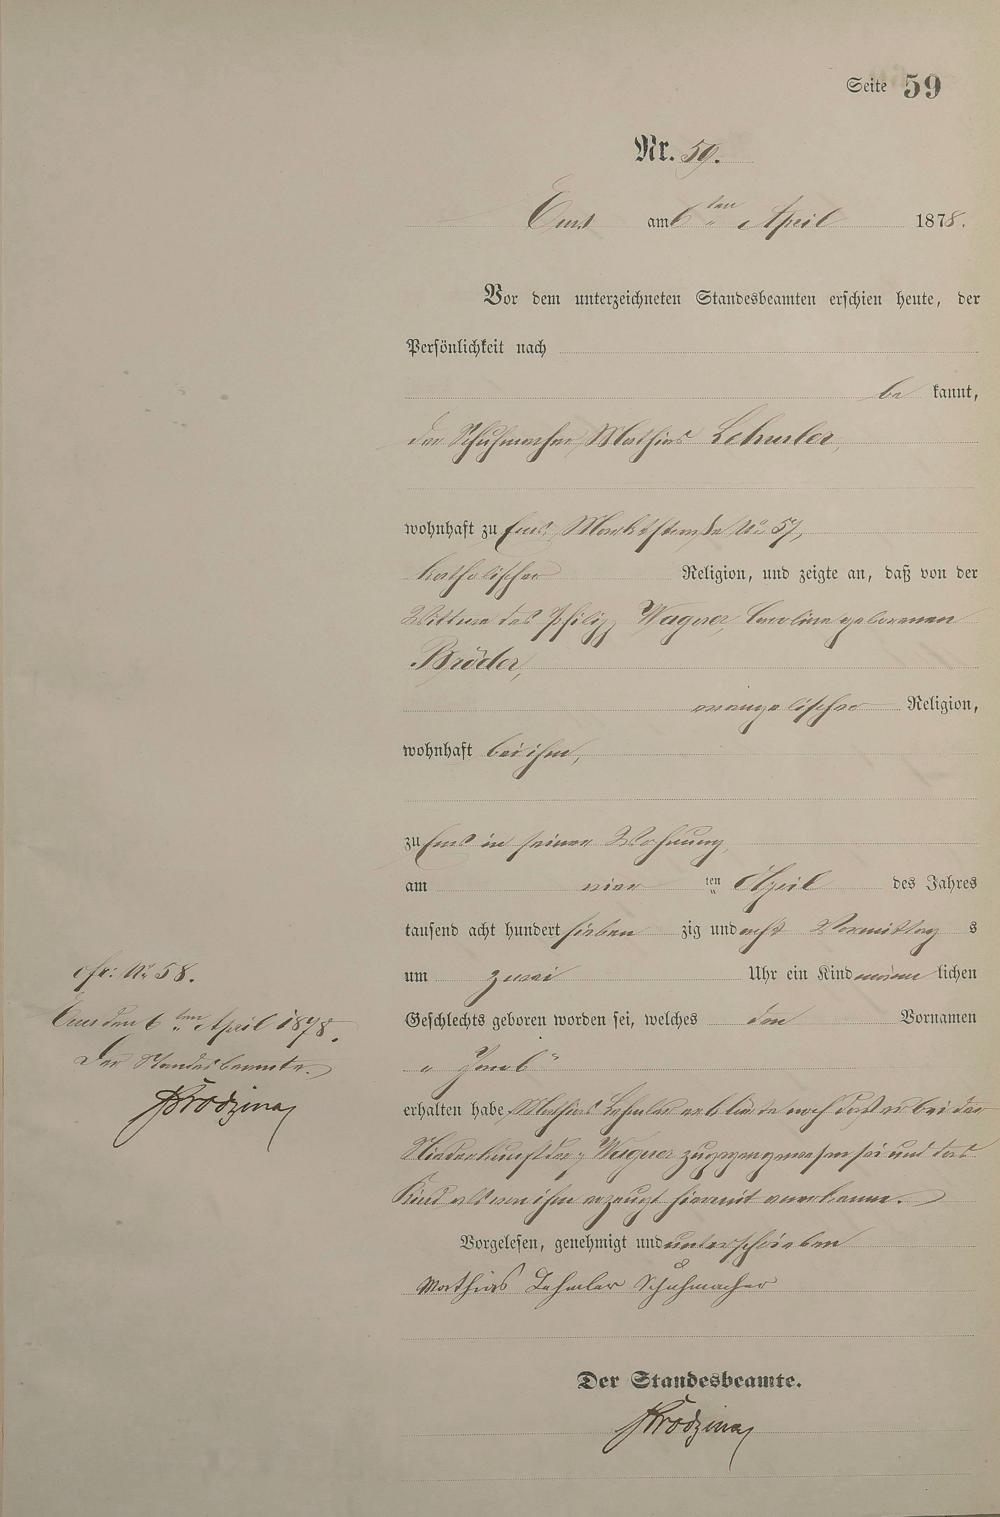 Seite 59
Nr. 59.
Ems am 6ten April 1878.
Vor dem unterzeichneten Standesbeamten erschien heute, der
Persönlichkeit nach
be kannt,
der Schuhmacher Mathias Lehmler,
wohnhaft zu Ems, Marktstraße No 57,
katholischer Religion, und zeigte an, daß von der
Wittwe des Philipp Wagner, Caroline geborenen
Bröder,
evangelischer Religion,
wohnhaft bei ihm,
zu Ems in seiner Wohnung,
am vier ten April des Jahres
tausend acht hundert sieben zig und acht Vormittag s
um zwei Uhr ein Kind männ lichen
Geschlechts geboren worden sei, welches den Vornamen
„ Jacob "
erhalten habe. Mathias Lehmler erklärte noch daß er bei der
Niederkunft der Wagner zugegen gewesen sei und das
Kind als von ihm erzeugt hiermit anerkenne.
Vorgelesen, genehmigt und unterschrieben
Mathias Lehmler Schuhmacher
Der Standesbeamte.
cfr: No 58.
Ems den 6ten April 1878.
Der Standesbeamte.